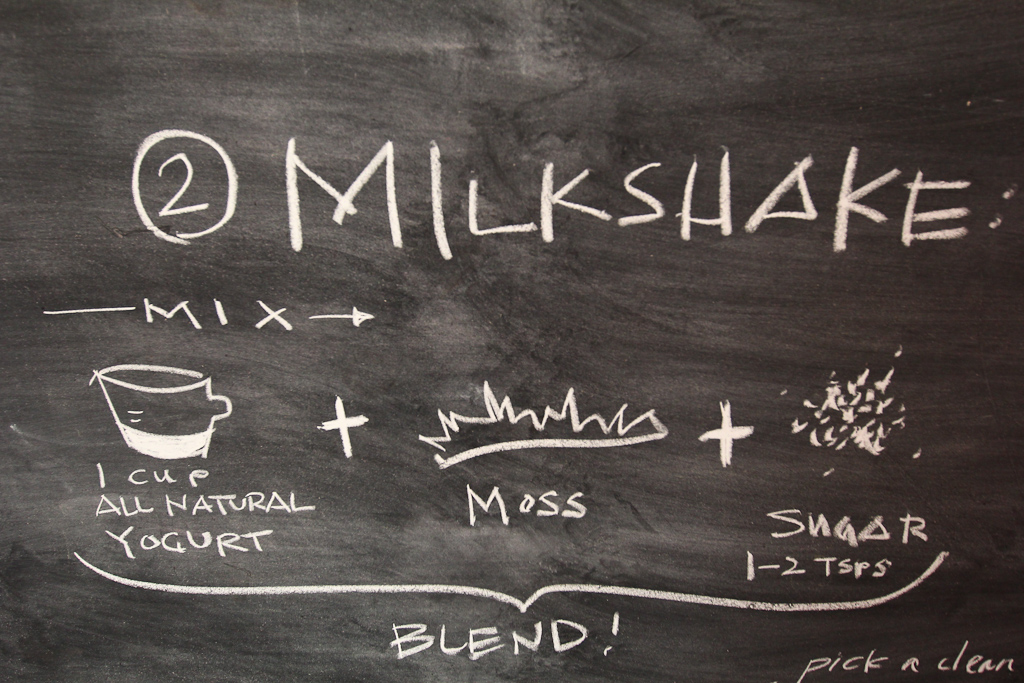 ② MILKSHAKE:
MIX →
1 cup
ALL NATURAL
YOGURT
+
Moss
+
SUGAR
1-2 TSPS
BLEND!
pick a clean